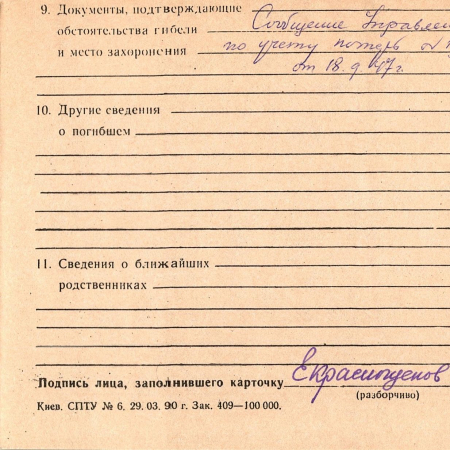 9. Документы, подтверждающие Сообщение Управлен
обстоятельства гибели по учету потерь
и место захоронения от 18. 9 47 г.
10. Другие сведения
о погибшем
11. Сведения о ближайших
родственниках
Подпись лица, заполнившего карточку
(разборчиво)
Киев. СПТУ № 6. 29. 03. 90 г. Зак. 409—100 000.